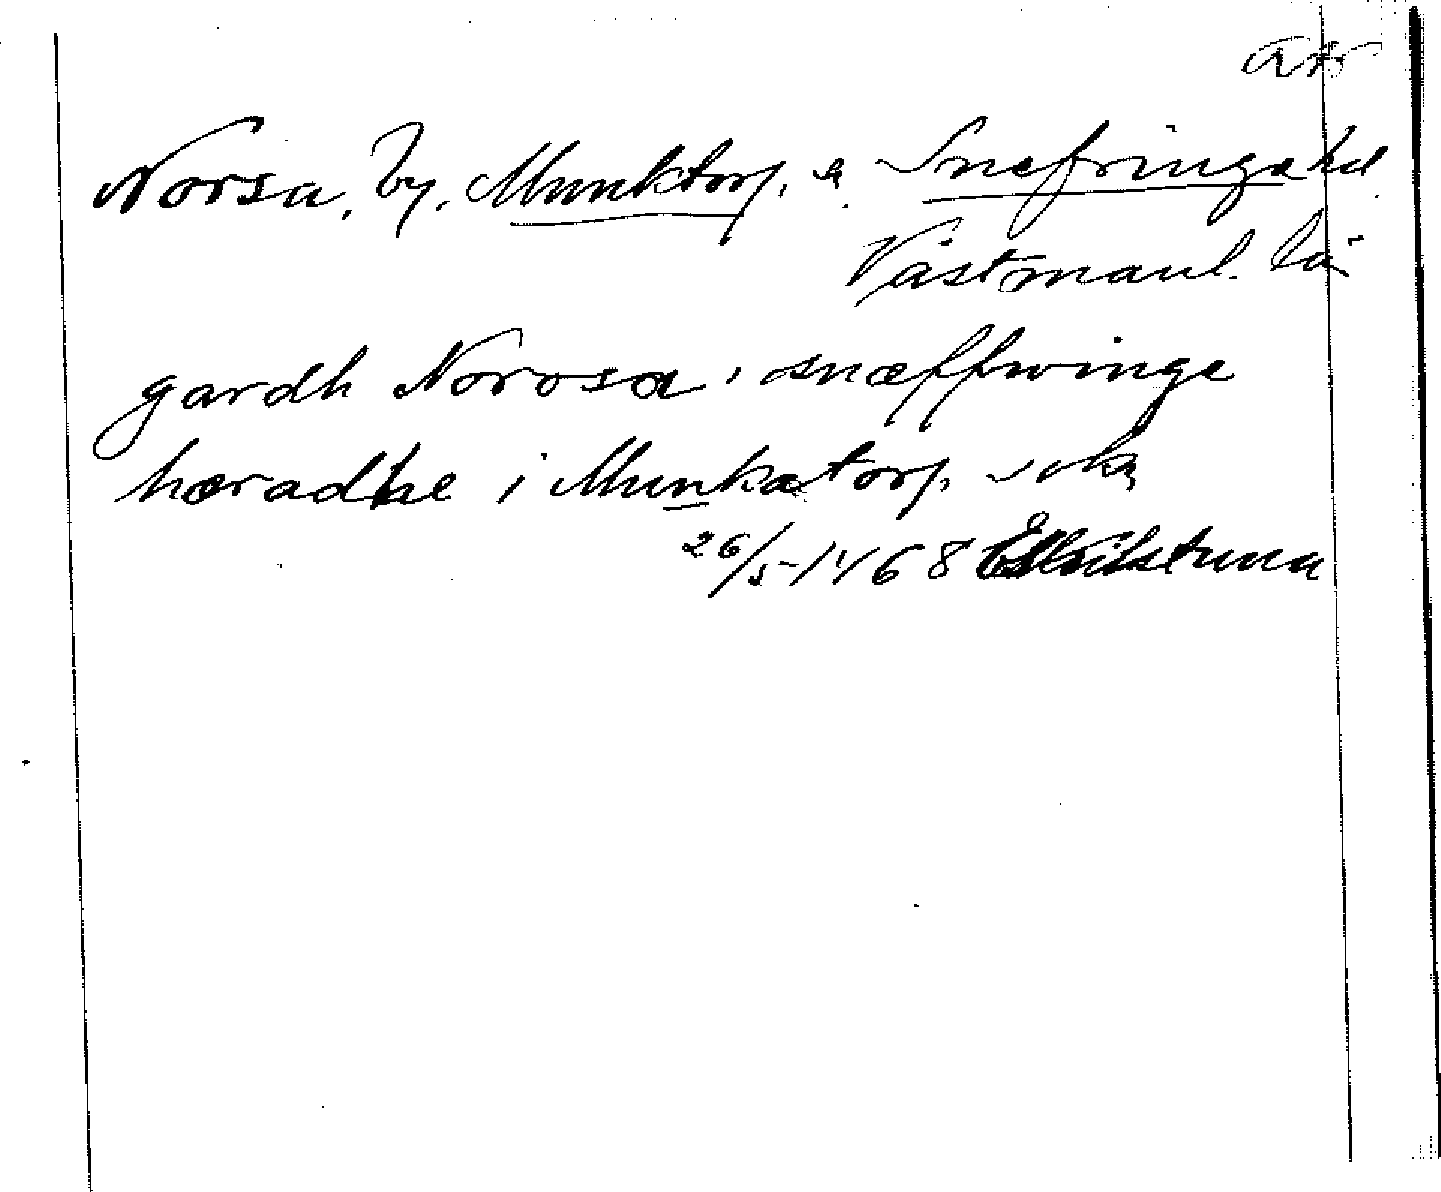 Norsa, by, Munktorp. s. Snefringe hd.
Västmanl. län
gardh Norosa i snæffwinge
hæradhe i Munkatorp sokn
26/5 1468 Eskilstuna